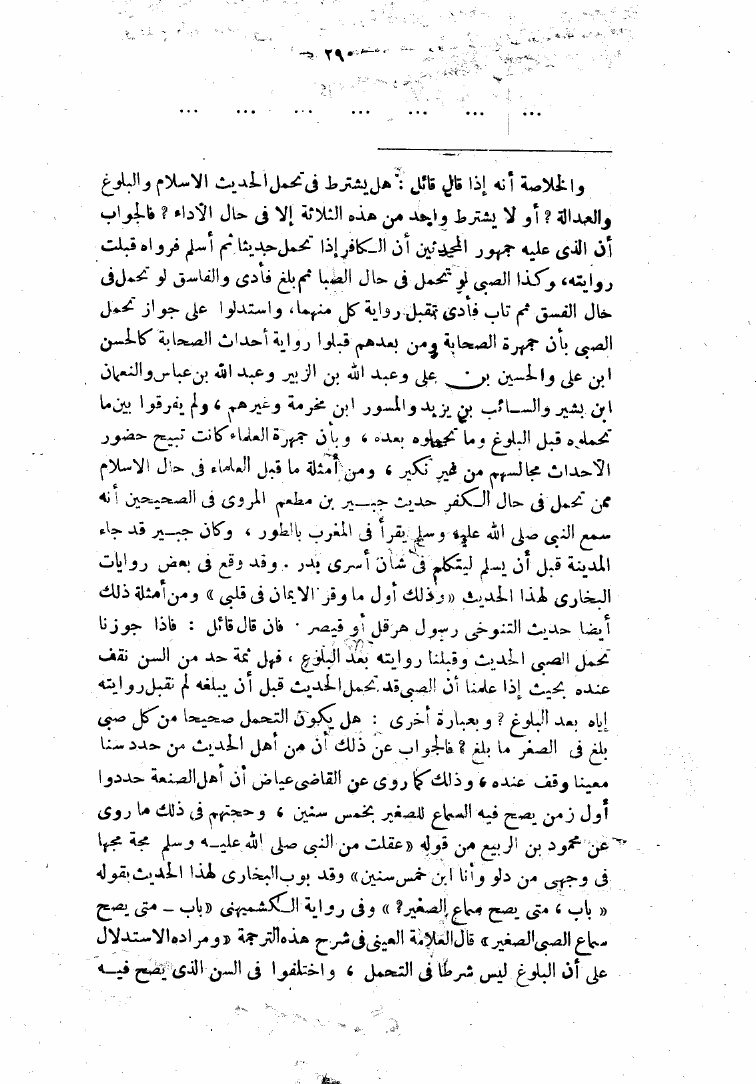 — ٢٩٠ —
... ... ... ... ... ... ...
والخلاصة أنه إذا قال قائل : هل يشترط فى تحمل الحديث الاسلام والبلوغ
والعدالة ? أو لا يشترط واحد من هذه الثلاثة إلا فى حال الأداء ? فالجواب
أن الذى عليه جمهور المحدثين أن الكافر إذا تحمل حديثا ثم أسلم فرواه قبلت
روايته، وكذا الصبى لو تحمل فى حال الصبا ثم بلغ فأدى والفاسق لو تحمل فى
حال الفسق ثم تاب فأدى تقبل رواية كل منهما، واستدلوا على جواز تحمل
الصبى بأن جمهرة الصحابة ومن بعدهم قبلوا رواية أحداث الصحابة كالحسن
ابن على والحسين بن على وعبد الله بن الزبير وعبد الله بن عباس والنعمان
ابن بشير والسائب بن يزيد والمسور ابن مخرمة وغيرهم ، ولم يفرقوا بين ما
تحملوه قبل البلوغ وما تحملوه بعده ، وبأن جمهرة العلماء كانت تبيح حضور
الأحداث مجالسهم من غير نكير ، ومن أمثلة ما قبل العلماء فى حال الاسلام
ممن تحمل فى حال الكفر حديث جبير بن مطعم المروى فى الصحيحين أنه
سمع النبى صلى الله عليه وسلم يقرأ فى المغرب بالطور ، وكان جبير قد جاء
المدينة قبل أن يسلم ليتكلم فى شأن أسرى بدر . وقد وقع فى بعض روايات
البخارى لهذا الحديث «وذلك أول ما وقر الايمان فى قلبى» ومن أمثلة ذلك
أيضا حديث التنوخى رسول هرقل أو قيصر . فان قال قائل : فاذا جوزنا
تحمل الصبى الحديث وقبلنا روايته بعد البلوغ ، فهل ثمة حد من السن نقف
عنده بحيث إذا علمنا أن الصبى قد تحمل الحديث قبل أن يبلغه لم نقبل روايته
إياه بعد البلوغ ? وبعبارة أخرى : هل يكون التحمل صحيحا من كل صبى
بلغ فى الصغر ما بلغ ? فالجواب عن ذلك أن من أهل الحديث من حدد سنا
معينا وقف عنده ، وذلك كما روى عن القاضى عياض أن أهل الصنعة حددوا
أول زمن يصح فيه السماع للصغير بخمس سنين ، وحجتهم فى ذلك ما روى
عن محمود بن الربيع من قوله «عقلت من النبى صلى الله عليه وسلم مجة مجها
فى وجهى من دلو وأنا ابن خمس سنين» وقد بوب البخارى لهذا الحديث بقوله
«باب ، متى يصح سماع الصغير ? » وفى رواية الكشميهنى «باب - متى يصح
سماع الصبى الصغير» قال العلامة العينى فى شرح هذه الترجمة «ومراده الاستدلال
على أن البلوغ ليس شرطا فى التحمل ، واختلفوا فى السن الذى يصح فيه